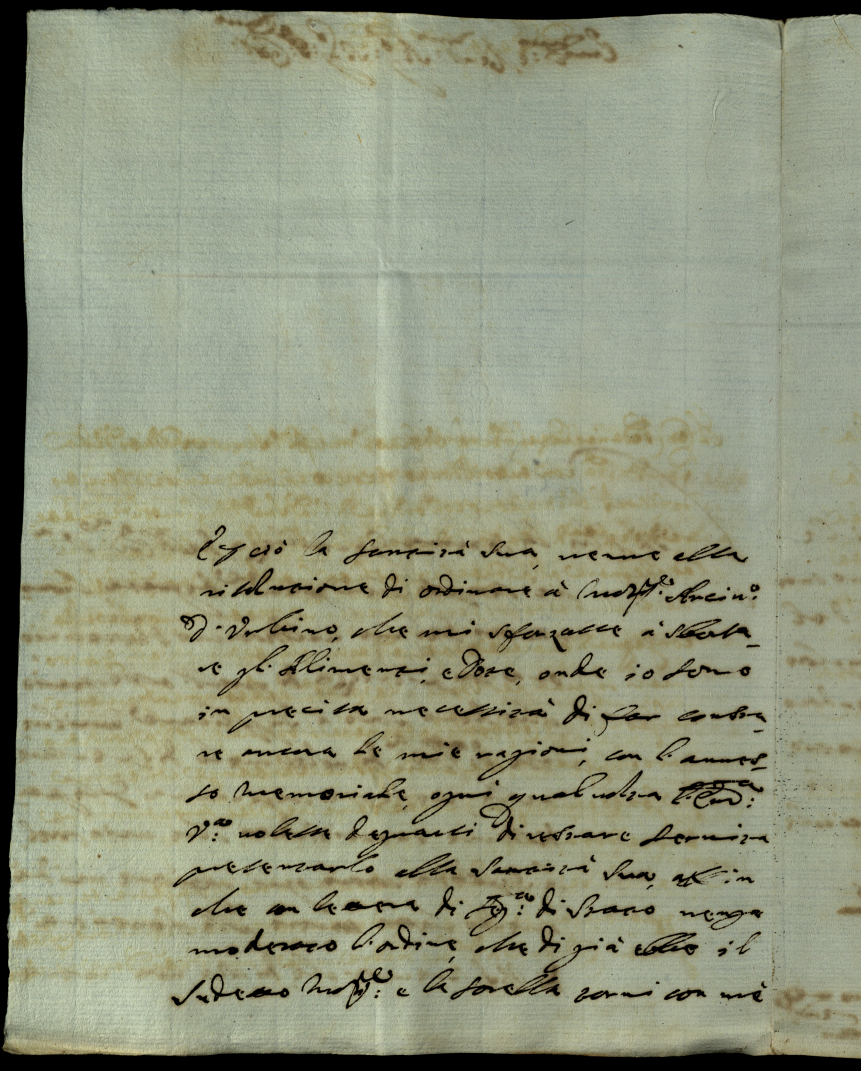 e per ciò la Santità Sua, venne alla
risoluzione di ordinare à Arciv.º
d'Urbino, che mi sforzasse à sborsa-
re gl'Alimenti, e Dote, onde io sono
in precisa necessità di far consta-
re ancora le mie ragioni, con l'annes-
so Memoriale, ogni qualvolta
V.ra volesse degnarsi di restare servita
presentarlo alla Santità Sua, affin
che con lettera di Seg.ria di Stato venga
moderato l'ordine, che di già ebbe il
sudetto e la sorella torni con mè